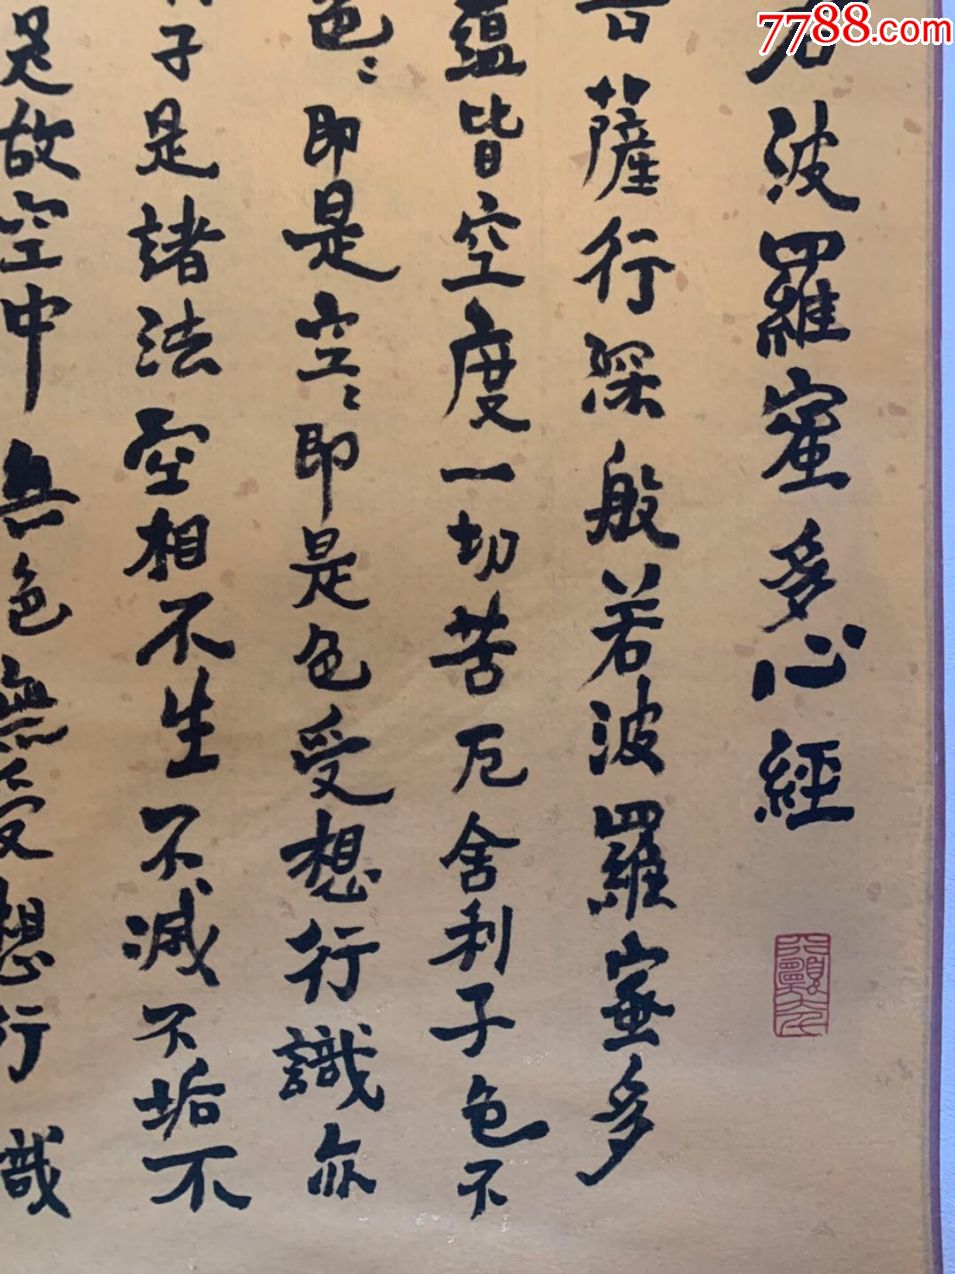 7788.com
若波羅蜜多心經
菩薩行深般若波羅蜜多
蘊皆空度一切苦厄舍利子色不
色〻即是空〻即是色受想行識亦
子是諸法空相不生不減不垢不
是故空中無色無受想行識